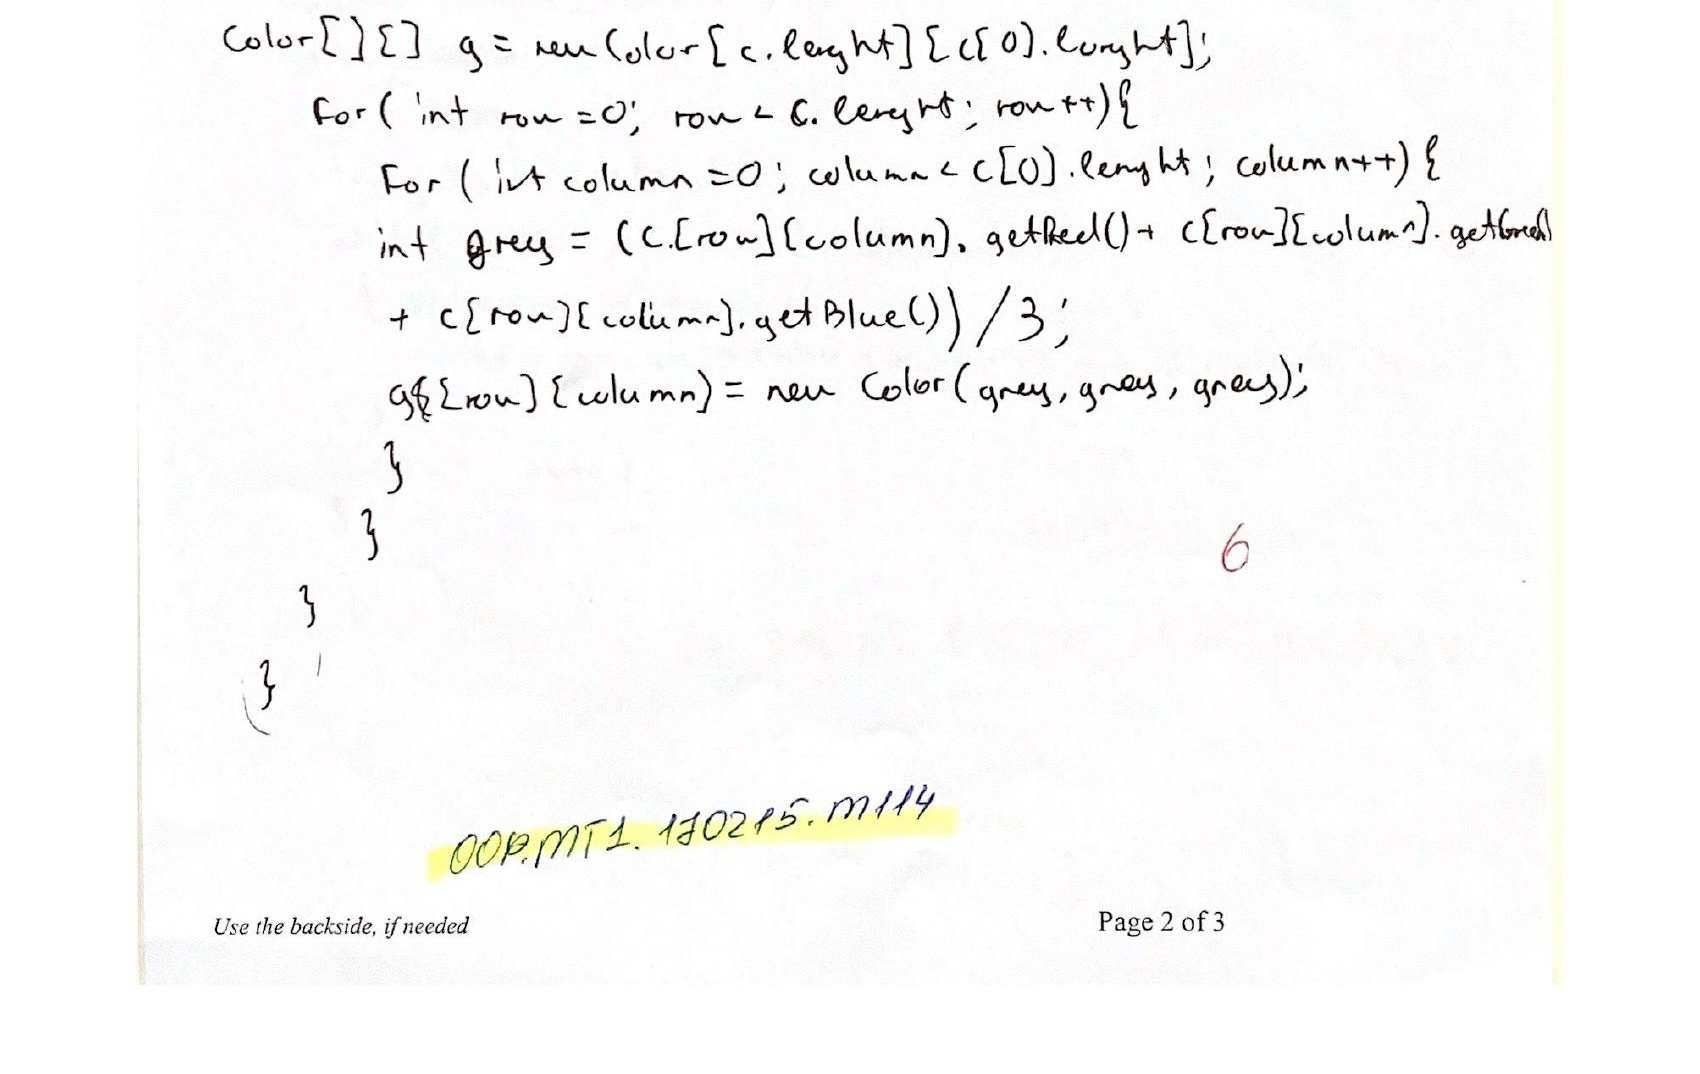 Color[][] g = new Color[c.lenght][c[0].lenght];
For( int row =0; row < c. lenght; row ++){
For ( int column =0; column < c[0].lenght; column++) {
int grey = (c.[row][column]. getRed()+ c[row][column]. getGreen()
+ c[row][column]. getBlue()) /3;
g[row][column] = new Color(grey, grey, grey);
}
}
6
}
}
OOP.MT1. 170215. M114
Use the backside, if needed
Page 2 of 3